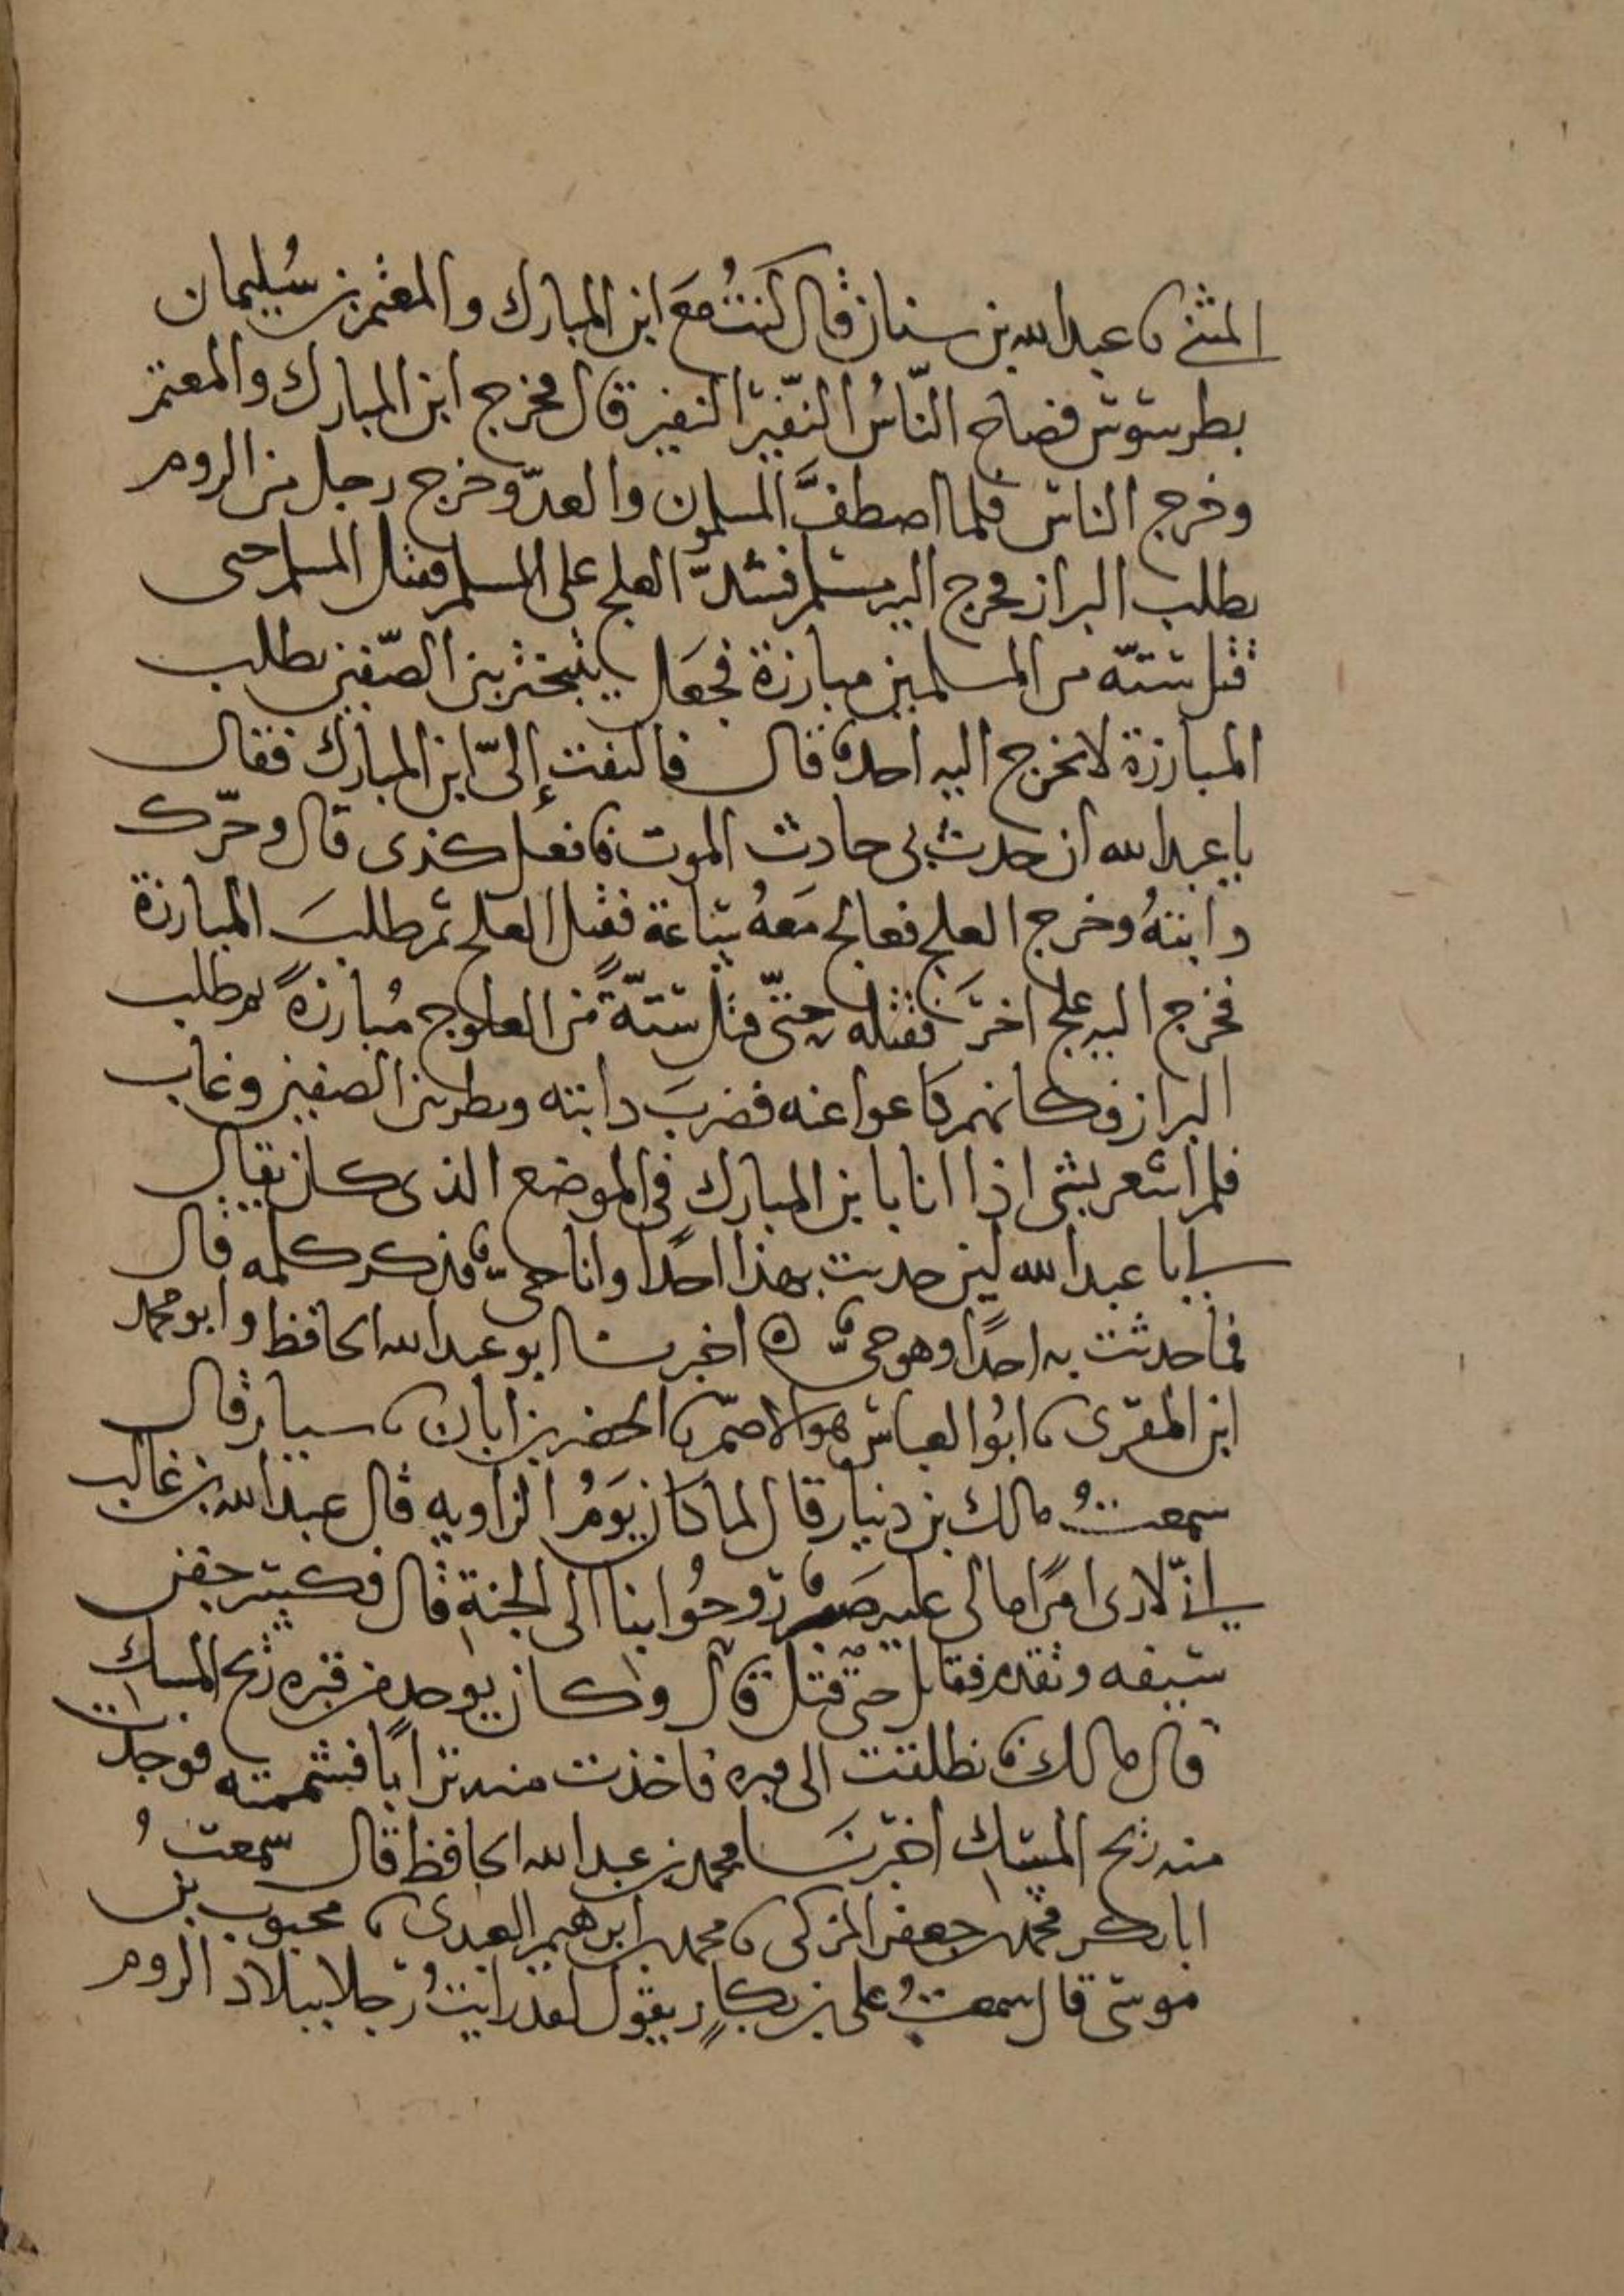 المثنى نا عبد الله بن سنان قال كنتُ معَ ابن المبارك والمعتمر بن سُليمان
بطرسوس فصاح النّاسُ النّفير النفير قال فخرج ابن المبارك والمعتمر
وخرج الناس فلما اصطفَّ المسلمون والعدوّ خرج رجل من الروم
يطلب البراز فخرج اليه مسلم فشدّ العلج على المسلم فقتل المسلم حتى
قتل ستّة من المسلمين مبارزة فجعَل يتبختر بين الصّفين يطلب
المبارزة لا يخرج اليه احد قال فالتفت إليّ ابن المبارك فقال
يا عبد الله ان حدث بي حادث الموت فافعل كذى قال وحرّك
دابتهُ وخرج العلج فعالج معَهُ ساعة فقتل العلج ثم طلبَ المبارزة
فخرج اليه علج اخرَ فقتله حتّى قتل ستّةً من العلوج مُبارزةً ثم طلب
البراز فكانهم كاعوا عنه فضربَ دابته ونظر بين الصفين وغاب
فلم اشعر بشى اذا انا بابن المبارك في الموضع الذى كان فقال
لي يا عبد الله لئن حدثت بهذا احدًا وانا حىّ فذكر كلمه قال
فما حدثت به احدًا وهو حىّ ه اخبرنا ابو عبد الله الحافظ وابو محمد
ابن المقرى نا ابُو العباس هو الاصمّ نا الخضر بن ابان نا سيار قال
سمعتُ مالك بن دينار قال لما كان يَومُ الزاويه قال عبد الله بن غالب
اني لارى امرًا ما لى عليه صَبر رُوحُوا بنا الى الجنةِ قال فكسر جفن
سيفه وتقدم فقاتل حتى قتل قال وكان يوجد من قبره ريح المسك
قال مالك فانطلقت الى قبره فاخذت منه ترابًا فشممته فوجدت
منه ريح المسك اخبرنَا محمد بن عبد الله الحافظ قال سمعتُ
ابا بكر محمد بن جعفر المزكى نا محمد بن ابرهيم العبدى نا محبوب بن
موسى قال سمعتُ على بن بكارٍ يقول لقد رايتُ رجلا ببلاد الروم